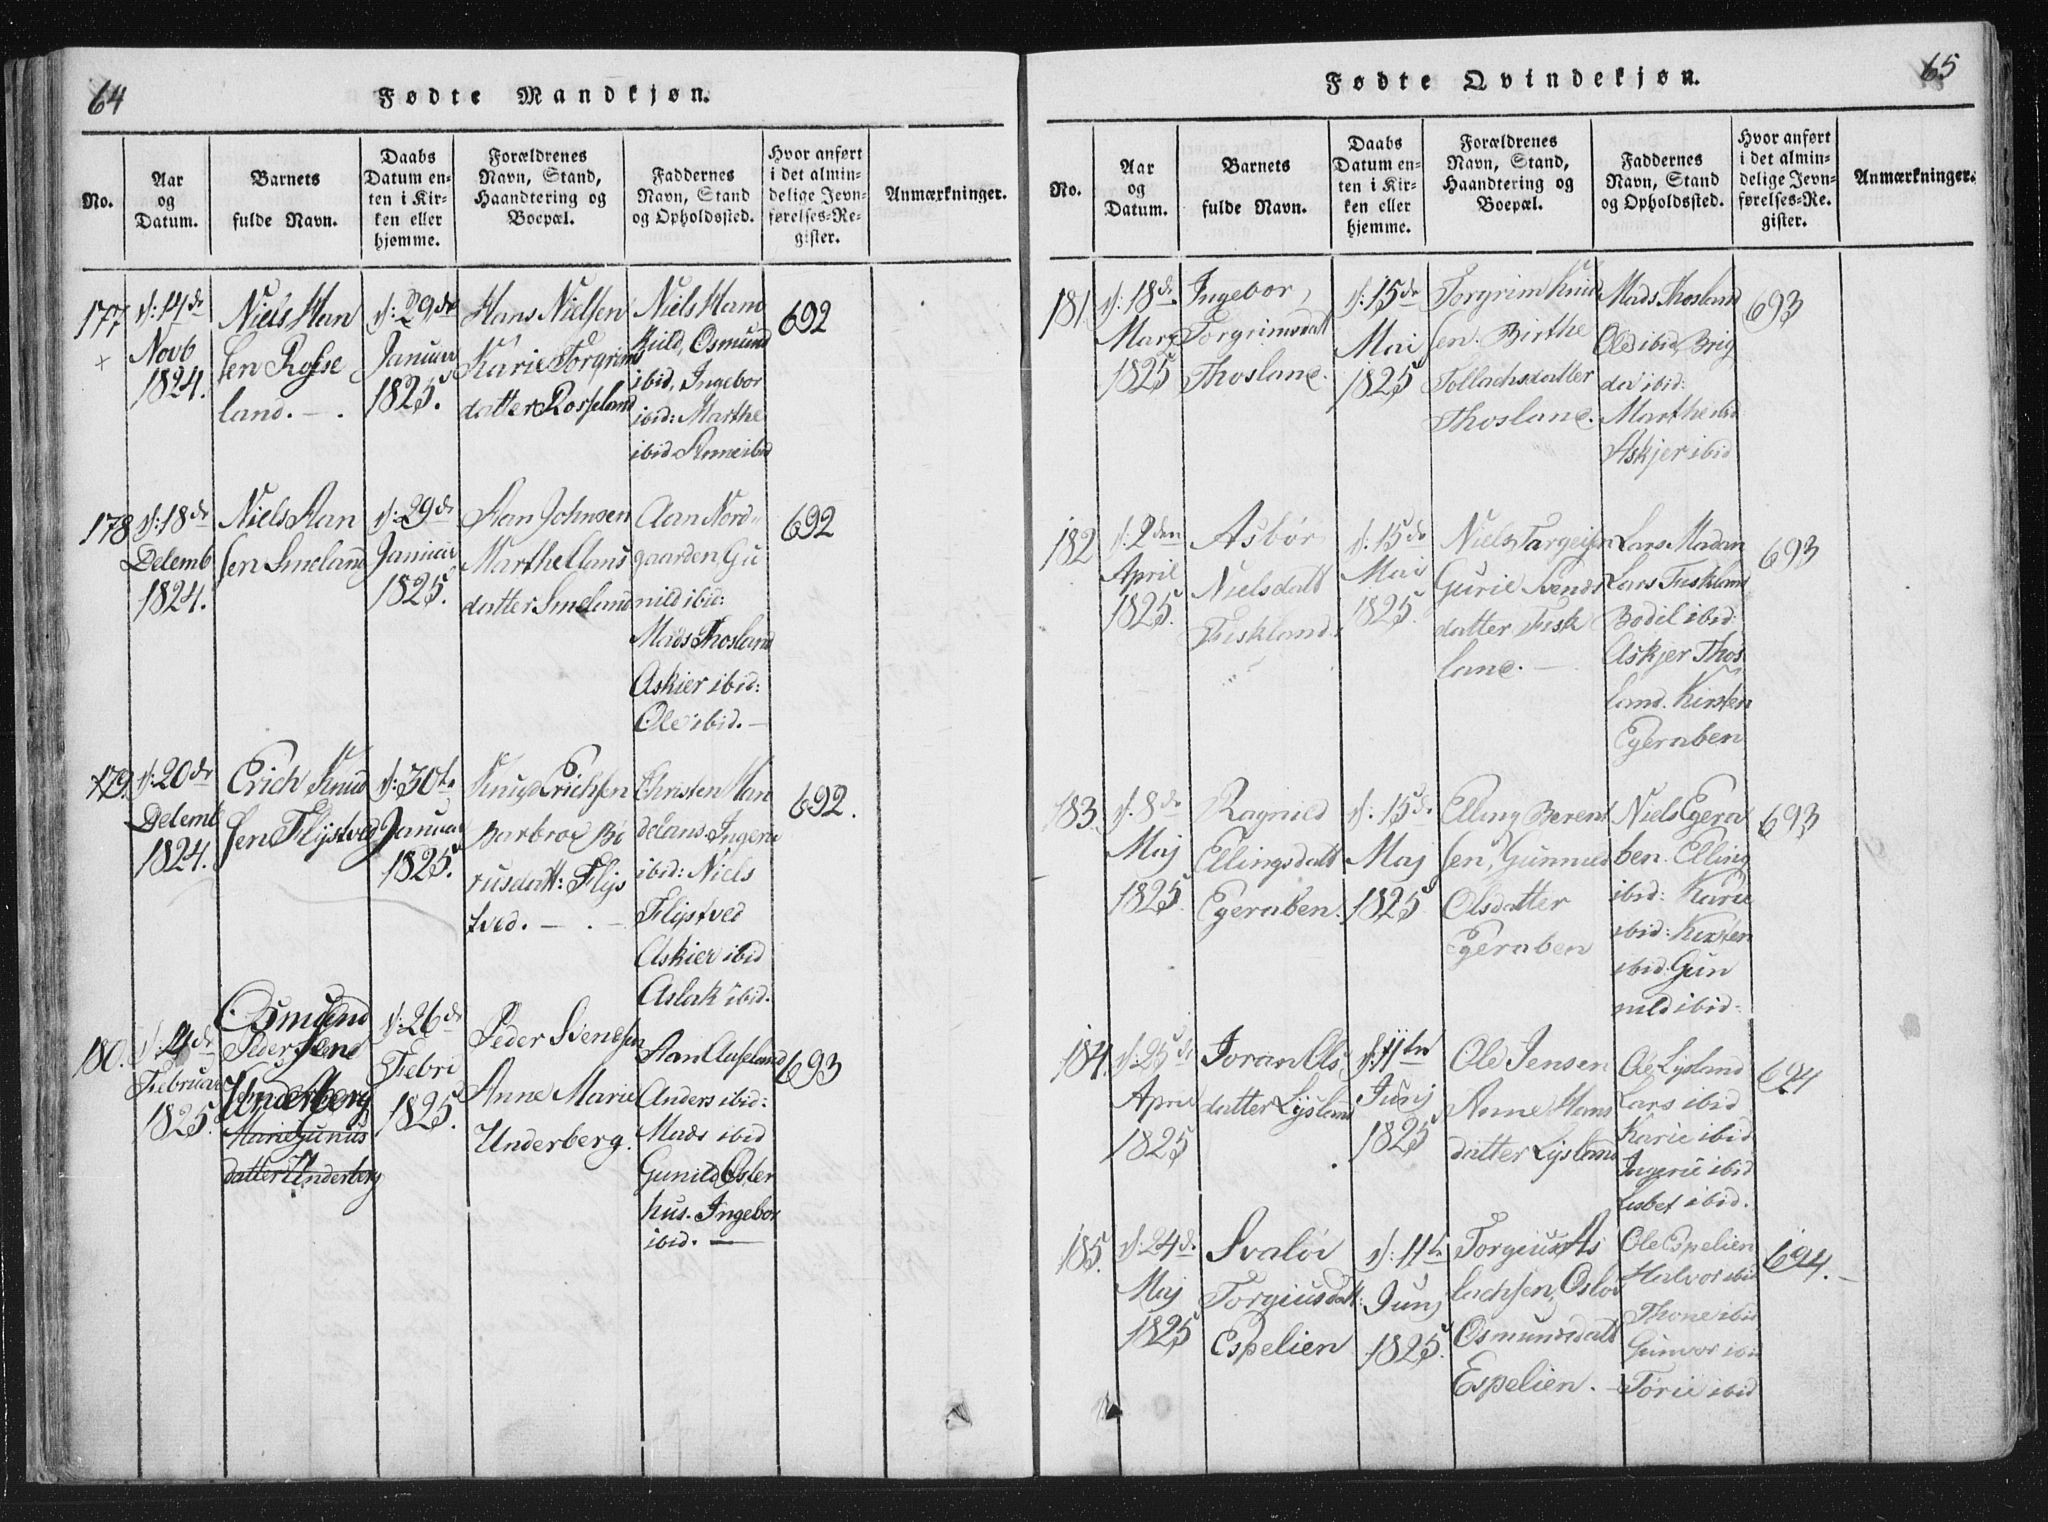 64
Fødte Mandkjøn.
No.
Aar
og
Datum.
Barnets
fulde Navn.
Daabs
Datum en-
ten i Kir-
ken eller
hjemme.
Forældrenes
Navn, Stand,
Haandtering og
Boepæl.
Faddernes
Navn, Stand
og Opholdssted.
Hvor anført
i det almin-
delige Jevn-
førelses-Re-
gister.
Anmærkninger.
177
d: 14de
Novb
1824.
Niels Han
sen Rosse
land. — .
d: 29de
Januar
1825.
Hans Nielsen
Karie Torgrims
datter Rosseland
Niels Ham
Osmund
ibid, Ingebor
ibid: Marthe
ibid Anne ibid
692
178
d: 18de
Decemb
1824.
Niels Han
sen Smeland
d: 29de
Januar
1825.
Han Johnsen
Marthe Hans
datter Smeland
Aan Nord-
gaarden, Gu
nild ibid:
Mads Thosland
Askier ibid:
Ole ibid. —
692
179.
d: 20de
Decemb
1824.
Erich Knud
sen Flystved
d: 30te
Januar
1825.
Knud Erichsen
Barbroe Bi
rusdatt: Flys
tved. — . —
Christen Han
deland. Ingerie
ibid: Niels
Flystved
Askier ibid
Aslak ibid.
692.
180.
d: 4de
Februar
1825.
Osmund
Pedersen
Underberg
Marie Gunus
datter Underberg
d: 26de
Febri
1825.
Peder Svensen
Anne Marie
Underberg.
Han Auseland
Anders ibid:
Mads ibid
Gunild Oster
hus. Ingebor
ibid. —
693
65
Fødte Qvindekjøn.
No.
Aar
og
Datum.
Barnets
fulde Navn.
Daabs
Datum en-
ten i Kir-
ken eller
hjemme.
Forældrenes
Navn, Stand,
Haandtering og
Boepæl.
Faddernes
Navn, Stand
og Opholdssted.
Hvor anført
i det almin-
delige Jevn-
førelses-Re-
gister.
Anmærkninger.
181
d: 18de
Marz
1825
Ingebor
Torgrimsdatt
Thosland.
d: 15de
Mai
1825
Torgrim Knud
sen. Birthe
Tollachsdatter
Thosland.
Mads Thosland
Ole ibid, Brig
da ibid:
Marthe ibid
Askjer ibid
693
182
d: 2den
April
1825.
Asbør
Nielsdatt
Fiskland.
d: 15de
Mai
1825.
Niels Targeisen
Gurie Svends
datter Fisk
land. —
Lars Madan
Lars Fiskland
Bodil ibid:
Askjer Thos
land. Kirsten
Egeraben
693
183.
d: 8de
Maj
1825.
Ragnild
Ellingsdatt
Egeraben.
d: 15de
Maj
1825
Elling Berent
sen, Gunnild
Olsdatter
Egeraben
Niels Egera
ben. Elling
ibid: Karie
ibid: Kirsten
ibid. Gun
nild ibid:
693
184.
d: 25de
April
1825
Joran Ols
datter Lysland
d: 11te
Junj
1825
Ole Jensen
Anne Hans
datter Lysland
Ole Lysland
Lars ibid
Karie ibid
Ingerie ibid
Lisbet ibid.
694
185.
d: 24de
Maj
1825
Svaløv
Torgiusdatt:
Espelien
d: 11te
Junj
1825.
Torgius As
lachsen, Osløv
Osmundsdatt
Espelien. —
Ole Espelien
Halvor ibid
Thone ibid
Gunvor ibid
Torie ibid
694.